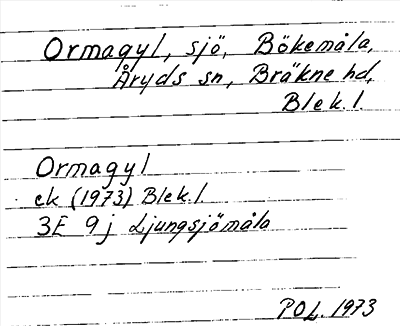 Ormagyl, sjö, Bökemåla,
Åryds sn, Bräkne hd,
Blek. l.
Ormagyl
ek (1973) Blek. l.
3E 9j Ljungsjömåla
POL. 1973